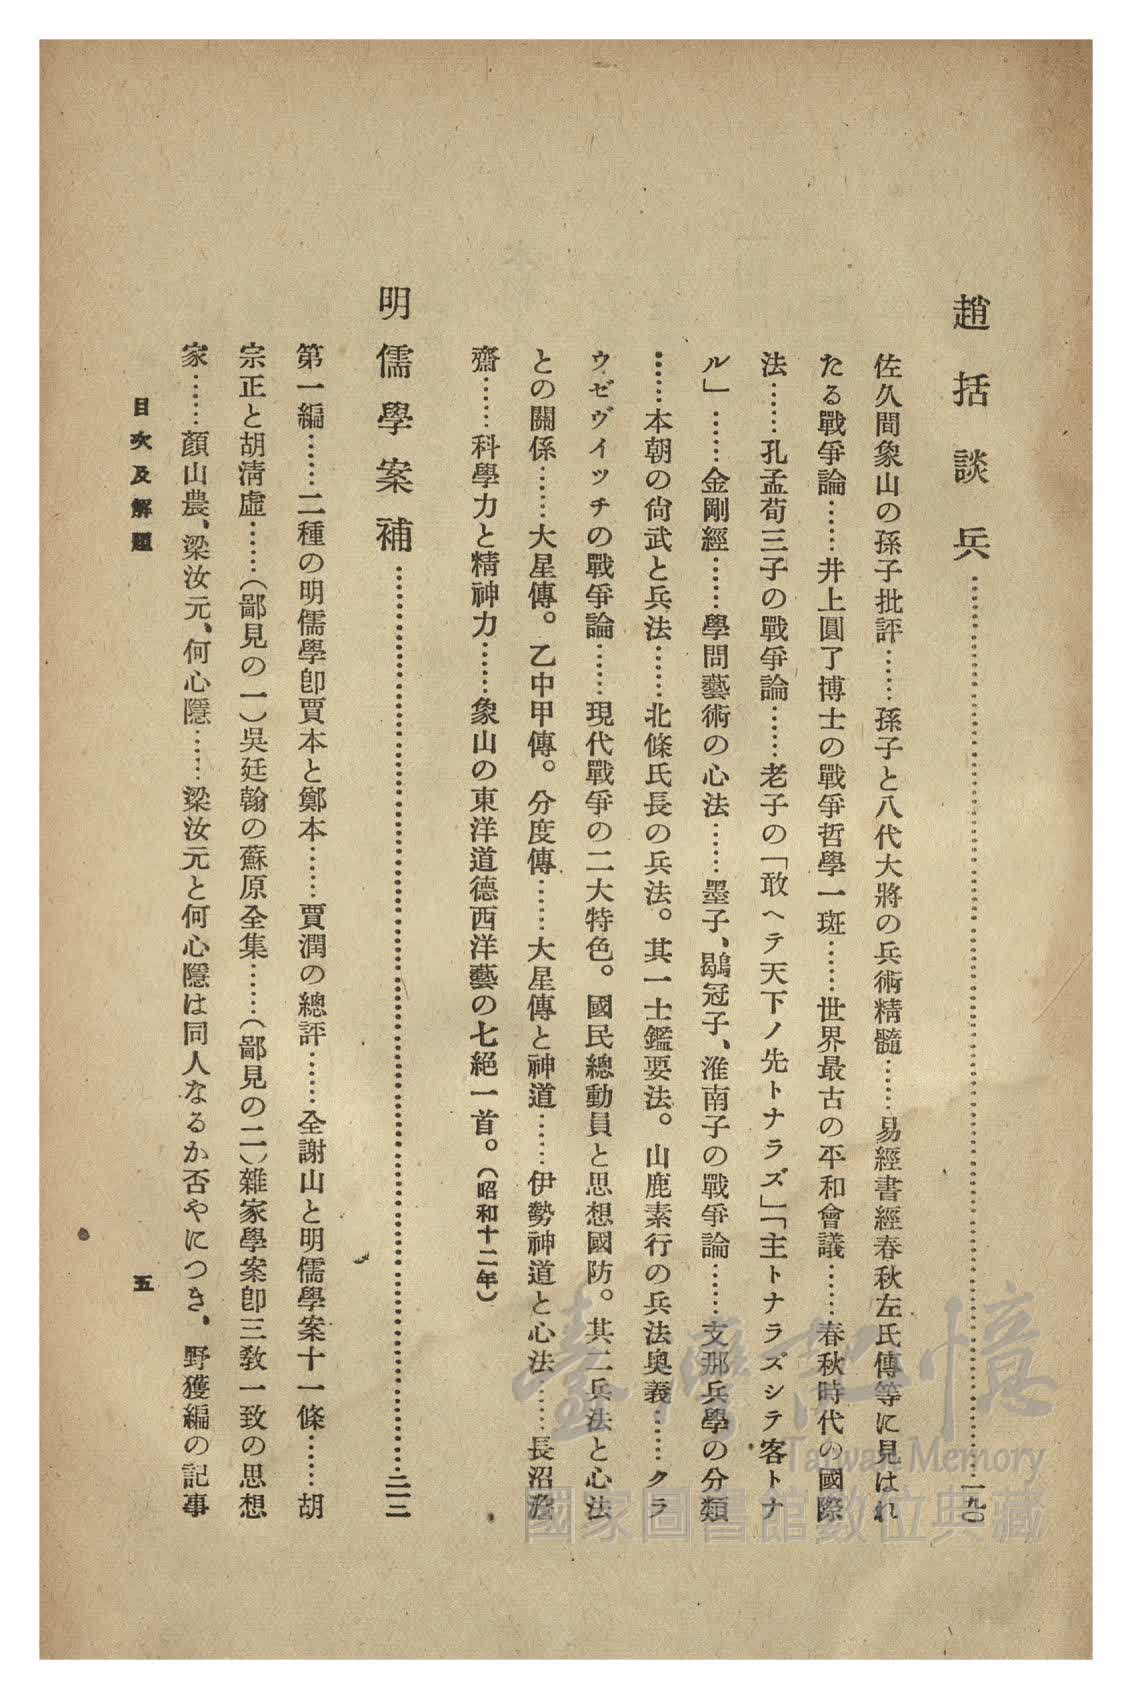 趙括談兵……………………一九〇
佐久間象山の孫子批評……孫子と八代大將の兵術精髓……易經書經春秋左氏傳等に見はれ
たる戰爭論……井上圓了博士の戰爭哲學一斑……世界最古の平和會議……春秋時代の國際
法……孔孟荀三子の戰爭論……老子の「敢ヘテ天下ノ先トナラズ」「主トナラズシテ客トナ
ル」……金剛經……學問藝術の心法……墨子、鶡冠子、淮南子の戰爭論……支那兵學の分類
……本朝の尙武と兵法……北條氏長の兵法。其一士鑑要法。山鹿素行の兵法奧義……クラ
ウゼヴイツチの戰爭論……現代戰爭の二大特色。國民總動員と思想國防。其二兵法と心法
との關係……大星傳。乙中甲傳。分度傳……大星傳と神道……伊勢神道と心法……長沼澹
齋……科學力と精神力……象山の東洋道德西洋藝の七絕一首。（昭和十二年）
明儒學案補……………………二三三
第一編……二種の明儒學卽賈本と鄭本……賈潤の總評……全謝山と明儒學案十一條……胡
宗正と胡淸虛……（鄙見の一）吳廷翰の蘇原全集……（鄙見の二）雜家學案卽三敎一致の思想
家……顏山農、梁汝元、何心隱……梁汝元と何心隱は同人なるか否やにつき、野獲編の記事
目次及解題
五
臺灣記憶
Taiwan Memory
國家圖書館數位典藏